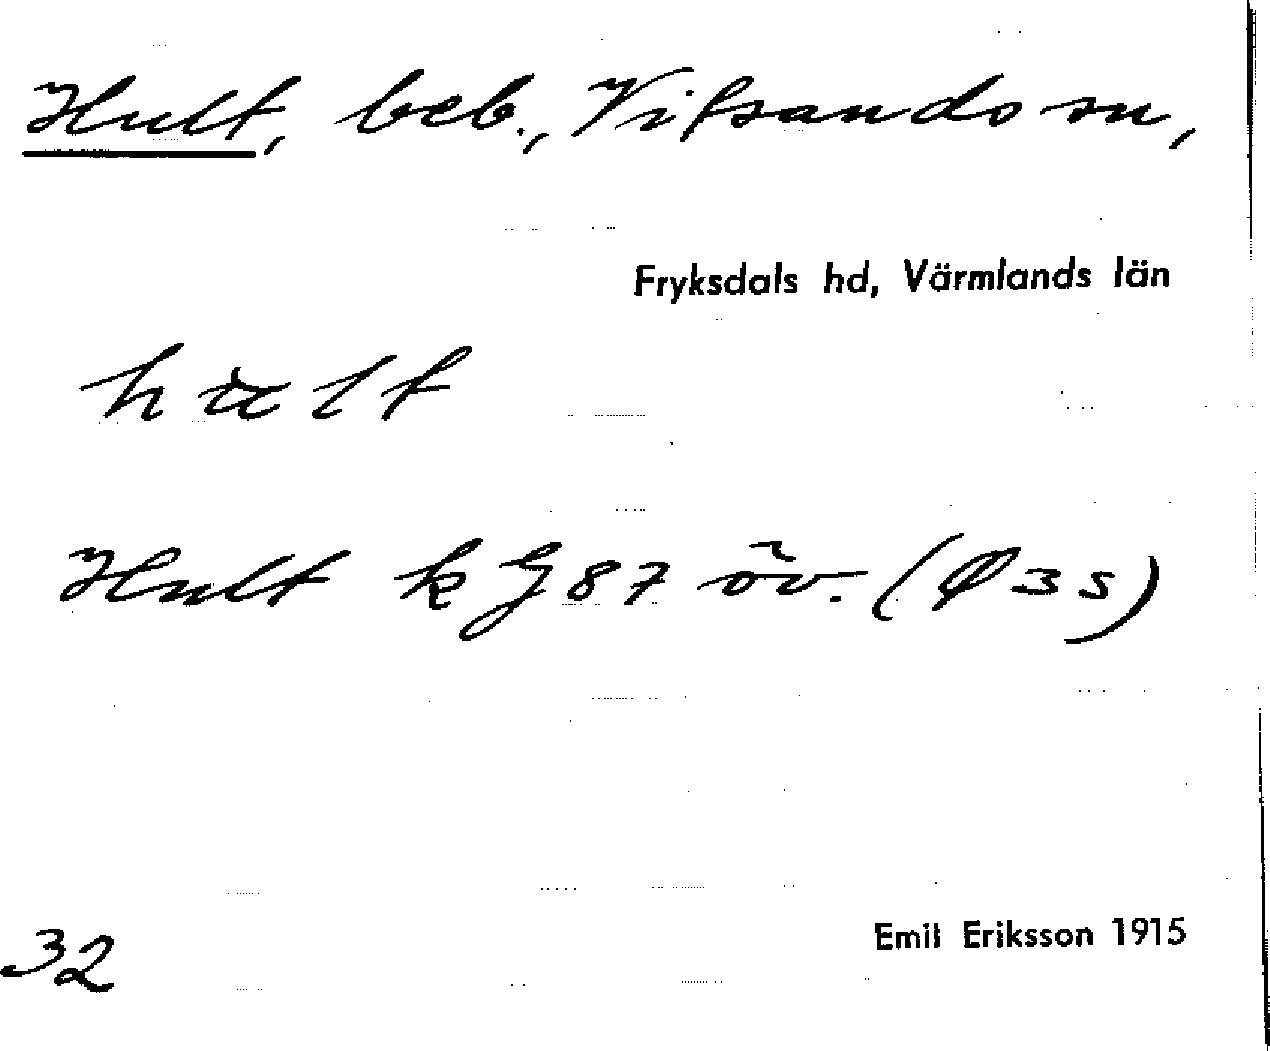 Hult, beb., Vitsands sn,
Fryksdals hd, Värmlands län
Hult k G 87 öv. (Ø 35)
Emil Eriksson 1915
32